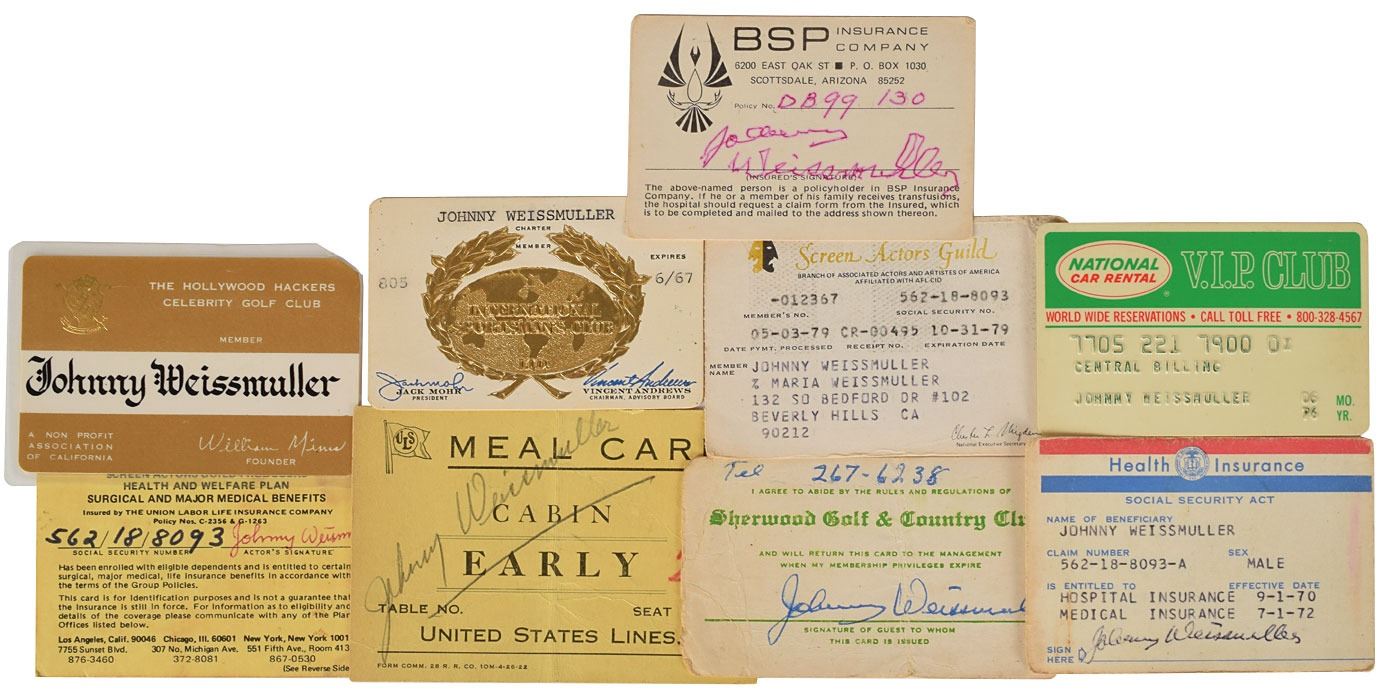 BSP INSURANCE COMPANY
6200 EAST OAK ST ■ P. O. BOX 1030
SCOTTSDALE, ARIZONA 85252
Policy No. DB99 130
Johnny
Weissmuller
(INSURED'S SIGNATURE)
The above-named person is a policyholder in BSP Insurance
Company. If he or a member of his family receives transfusions,
the hospital should request a claim form from the Insured, which
is to be completed and mailed to the address shown thereon.
THE HOLLYWOOD HACKERS
CELEBRITY GOLF CLUB
MEMBER
Johnny Weissmuller
A NON PROFIT
ASSOCIATION
OF CALIFORNIA
William Mims
FOUNDER
JOHNNY WEISSMULLER
CHARTER
MEMBER
EXPIRES
805
6/67
INTERNATIONAL
SPORTSMAN'S CLUB
Jack Mohr
JACK MOHR
PRESIDENT
Vincent Andrews
VINCENT ANDREWS
CHAIRMAN, ADVISORY BOARD
Screen Actors Guild
BRANCH OF ASSOCIATED ACTORS AND ARTISTES OF AMERICA
AFFILIATED WITH AFL-CIO
-012367 562-18-8093
MEMBER'S NO. SOCIAL SECURITY NO.
05-03-79 CR-00495 10-31-79
DATE PYMT. PROCESSED RECEIPT NO. EXPIRATION DATE
MEMBER NAME
JOHNNY WEISSMULLER
% MARIA WEISSMULLER
132 SO BEDFORD DR #102
BEVERLY HILLS CA
90212
National Executive Secretary
NATIONAL CAR RENTAL
V.I.P. CLUB
WORLD WIDE RESERVATIONS • CALL TOLL FREE • 800-328-4567
7705 221 7900 01
CENTRAL BILLING
JOHNNY WEISSMULLER
06 MO.
76 YR.
HEALTH AND WELFARE PLAN
SURGICAL AND MAJOR MEDICAL BENEFITS
Insured by THE UNION LABOR LIFE INSURANCE COMPANY
Policy Nos. C-2356 & G-1263
562/18/8093 Johnny Weissm
SOCIAL SECURITY NUMBER ACTOR'S SIGNATURE
Has been enrolled with eligible dependents and is entitled to certain
surgical, major medical, life insurance benefits in accordance with
the terms of the Group Policies.
This card is for identification purposes and is not a guarantee that
the insurance is still in force. For information as to eligibility and
details of the coverage please communicate with any of the Plan
Offices listed below.
Los Angeles, Calif. 90046 Chicago, Ill. 60601 New York, New York 1001
7755 Sunset Blvd. 307 No. Michigan Ave. 551 Fifth Ave., Room 413
876-3460 372-8081 867-0530
(See Reverse Side
USL
MEAL CAR
Johnny Weissmuller
CABIN
EARLY
TABLE NO. SEAT
UNITED STATES LINES
FORM COMM. 28 R. R. CO. 10M-4-26-22
Tel 267-6238
I AGREE TO ABIDE BY THE RULES AND REGULATIONS OF
Sherwood Golf & Country Clu
AND WILL RETURN THIS CARD TO THE MANAGEMENT
WHEN MY MEMBERSHIP PRIVILEGES EXPIRE
Johnny Weissmul
SIGNATURE OF GUEST TO WHOM
THIS CARD IS ISSUED
Health Insurance
SOCIAL SECURITY ACT
NAME OF BENEFICIARY
JOHNNY WEISSMULLER
CLAIM NUMBER SEX
562-18-8093-A MALE
IS ENTITLED TO EFFECTIVE DATE
HOSPITAL INSURANCE 9-1-70
MEDICAL INSURANCE 7-1-72
SIGN HERE Johnny Weissmuller